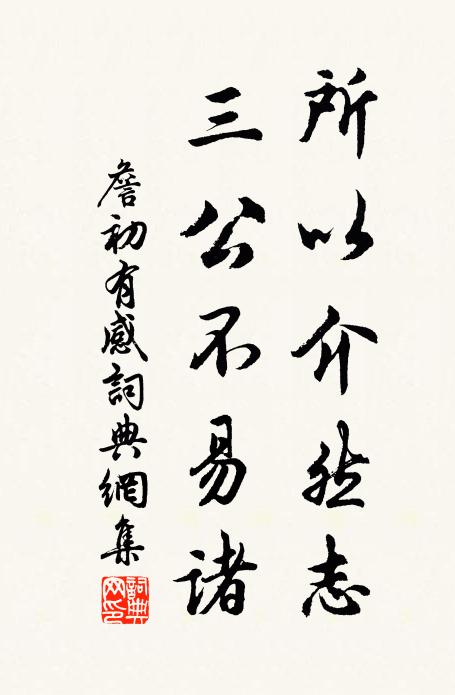 所以介然志
三公不易诸
詹初有感詞典網集
詞典网印